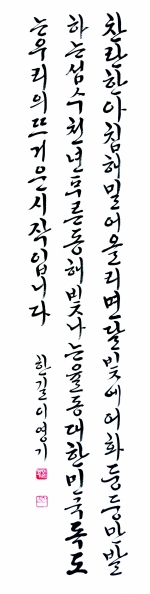 찬란한아침해밀어올리면달빛에어화둥둥만발
하는섬수천년푸른동해빛나는율동대한민국독도
는우리의뜨거운시작입니다
한길이영기